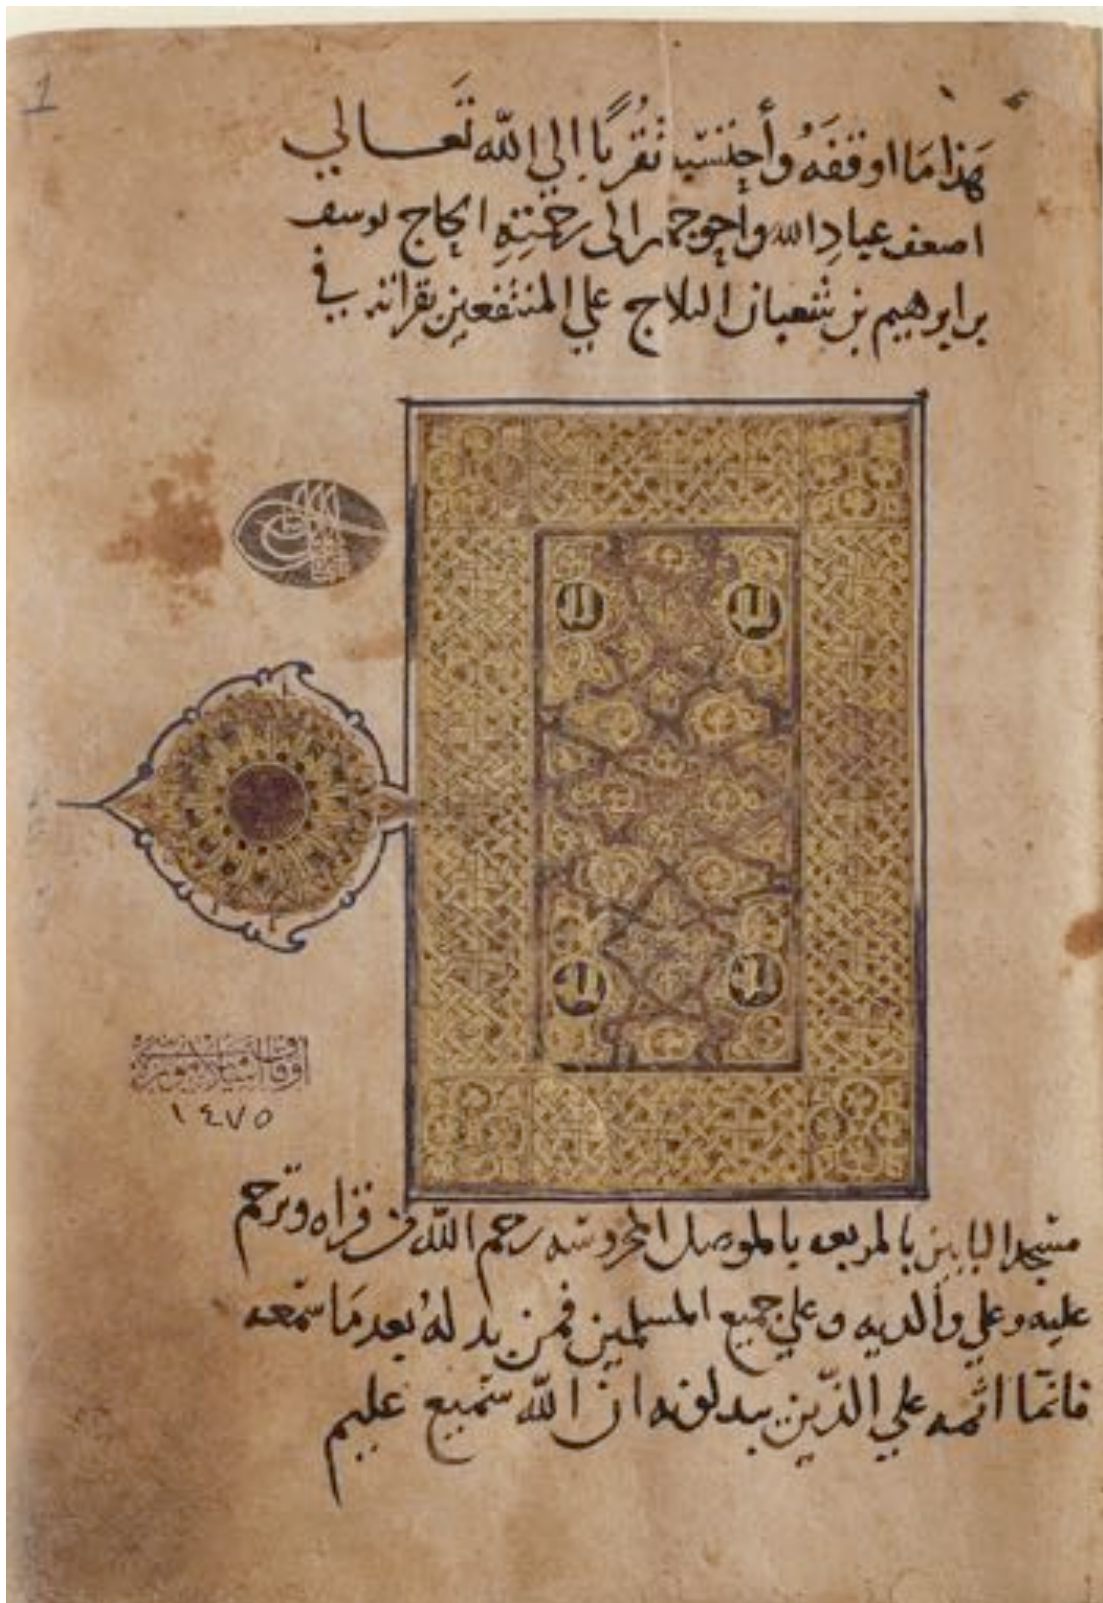 هذا ما اوقفه وأحتسبه تقربًا إلى الله تَعالي
اضعف عباد الله وأحوجهم الى رحمته الحاج يوسف
بن ابرهيم بن شعبان الملاح علي المنتفعين بقرائته في
١٤٧٥
مسجد البابين بالمربعه بالموصل المحروسه رحم الله من قراه وترحم
عليه وعلي والديه وعلي جميع المسلمين فمن بدله بعد ما سمعه
فانما اثمه علي الذين يبدلونه ان الله سميع عليم
1